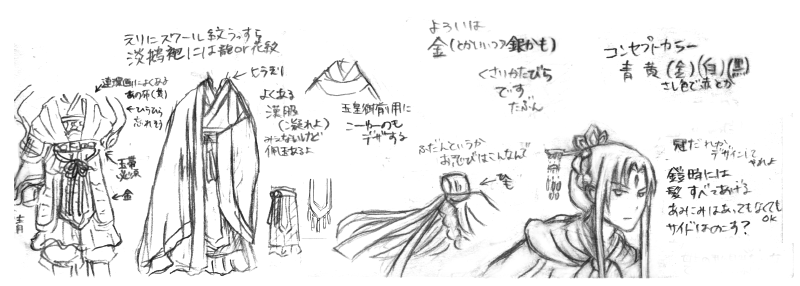 えりにスワール紋うっすら
淡鵝袍には龍or花紋
漫画によくある
あの布(黄)
←ひらひら
忘れそう
←金
青
ヒラミリ
よくある
漢服
みえないけど
佩玉あるよ
玉皇御前用に
こーゆーのも
デザする
よろいは
金(とかいいつつ銀かも)
くさりかたびら
です
たぶん
ふだんというか
お忍びはこんなんで
コンセプトカラー
青 黄(金)(白)(黒)
さし色で赤とか
冠だれか
デザインして
やれよ
鎧時には
髪すべてあげる
あみこみはあってもなくても
OK
サイドはのこす?